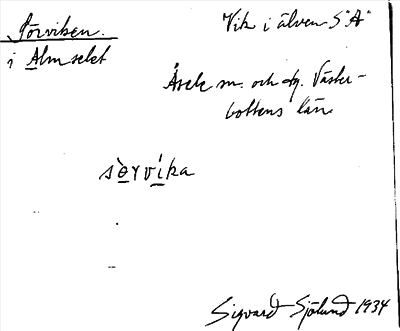 Sörviken.
i Almselet
Vik i älven S "A"
Åsele sn. och dg. Väster-
bottens län
sèrvíka
Sigvard Sjölund 1934